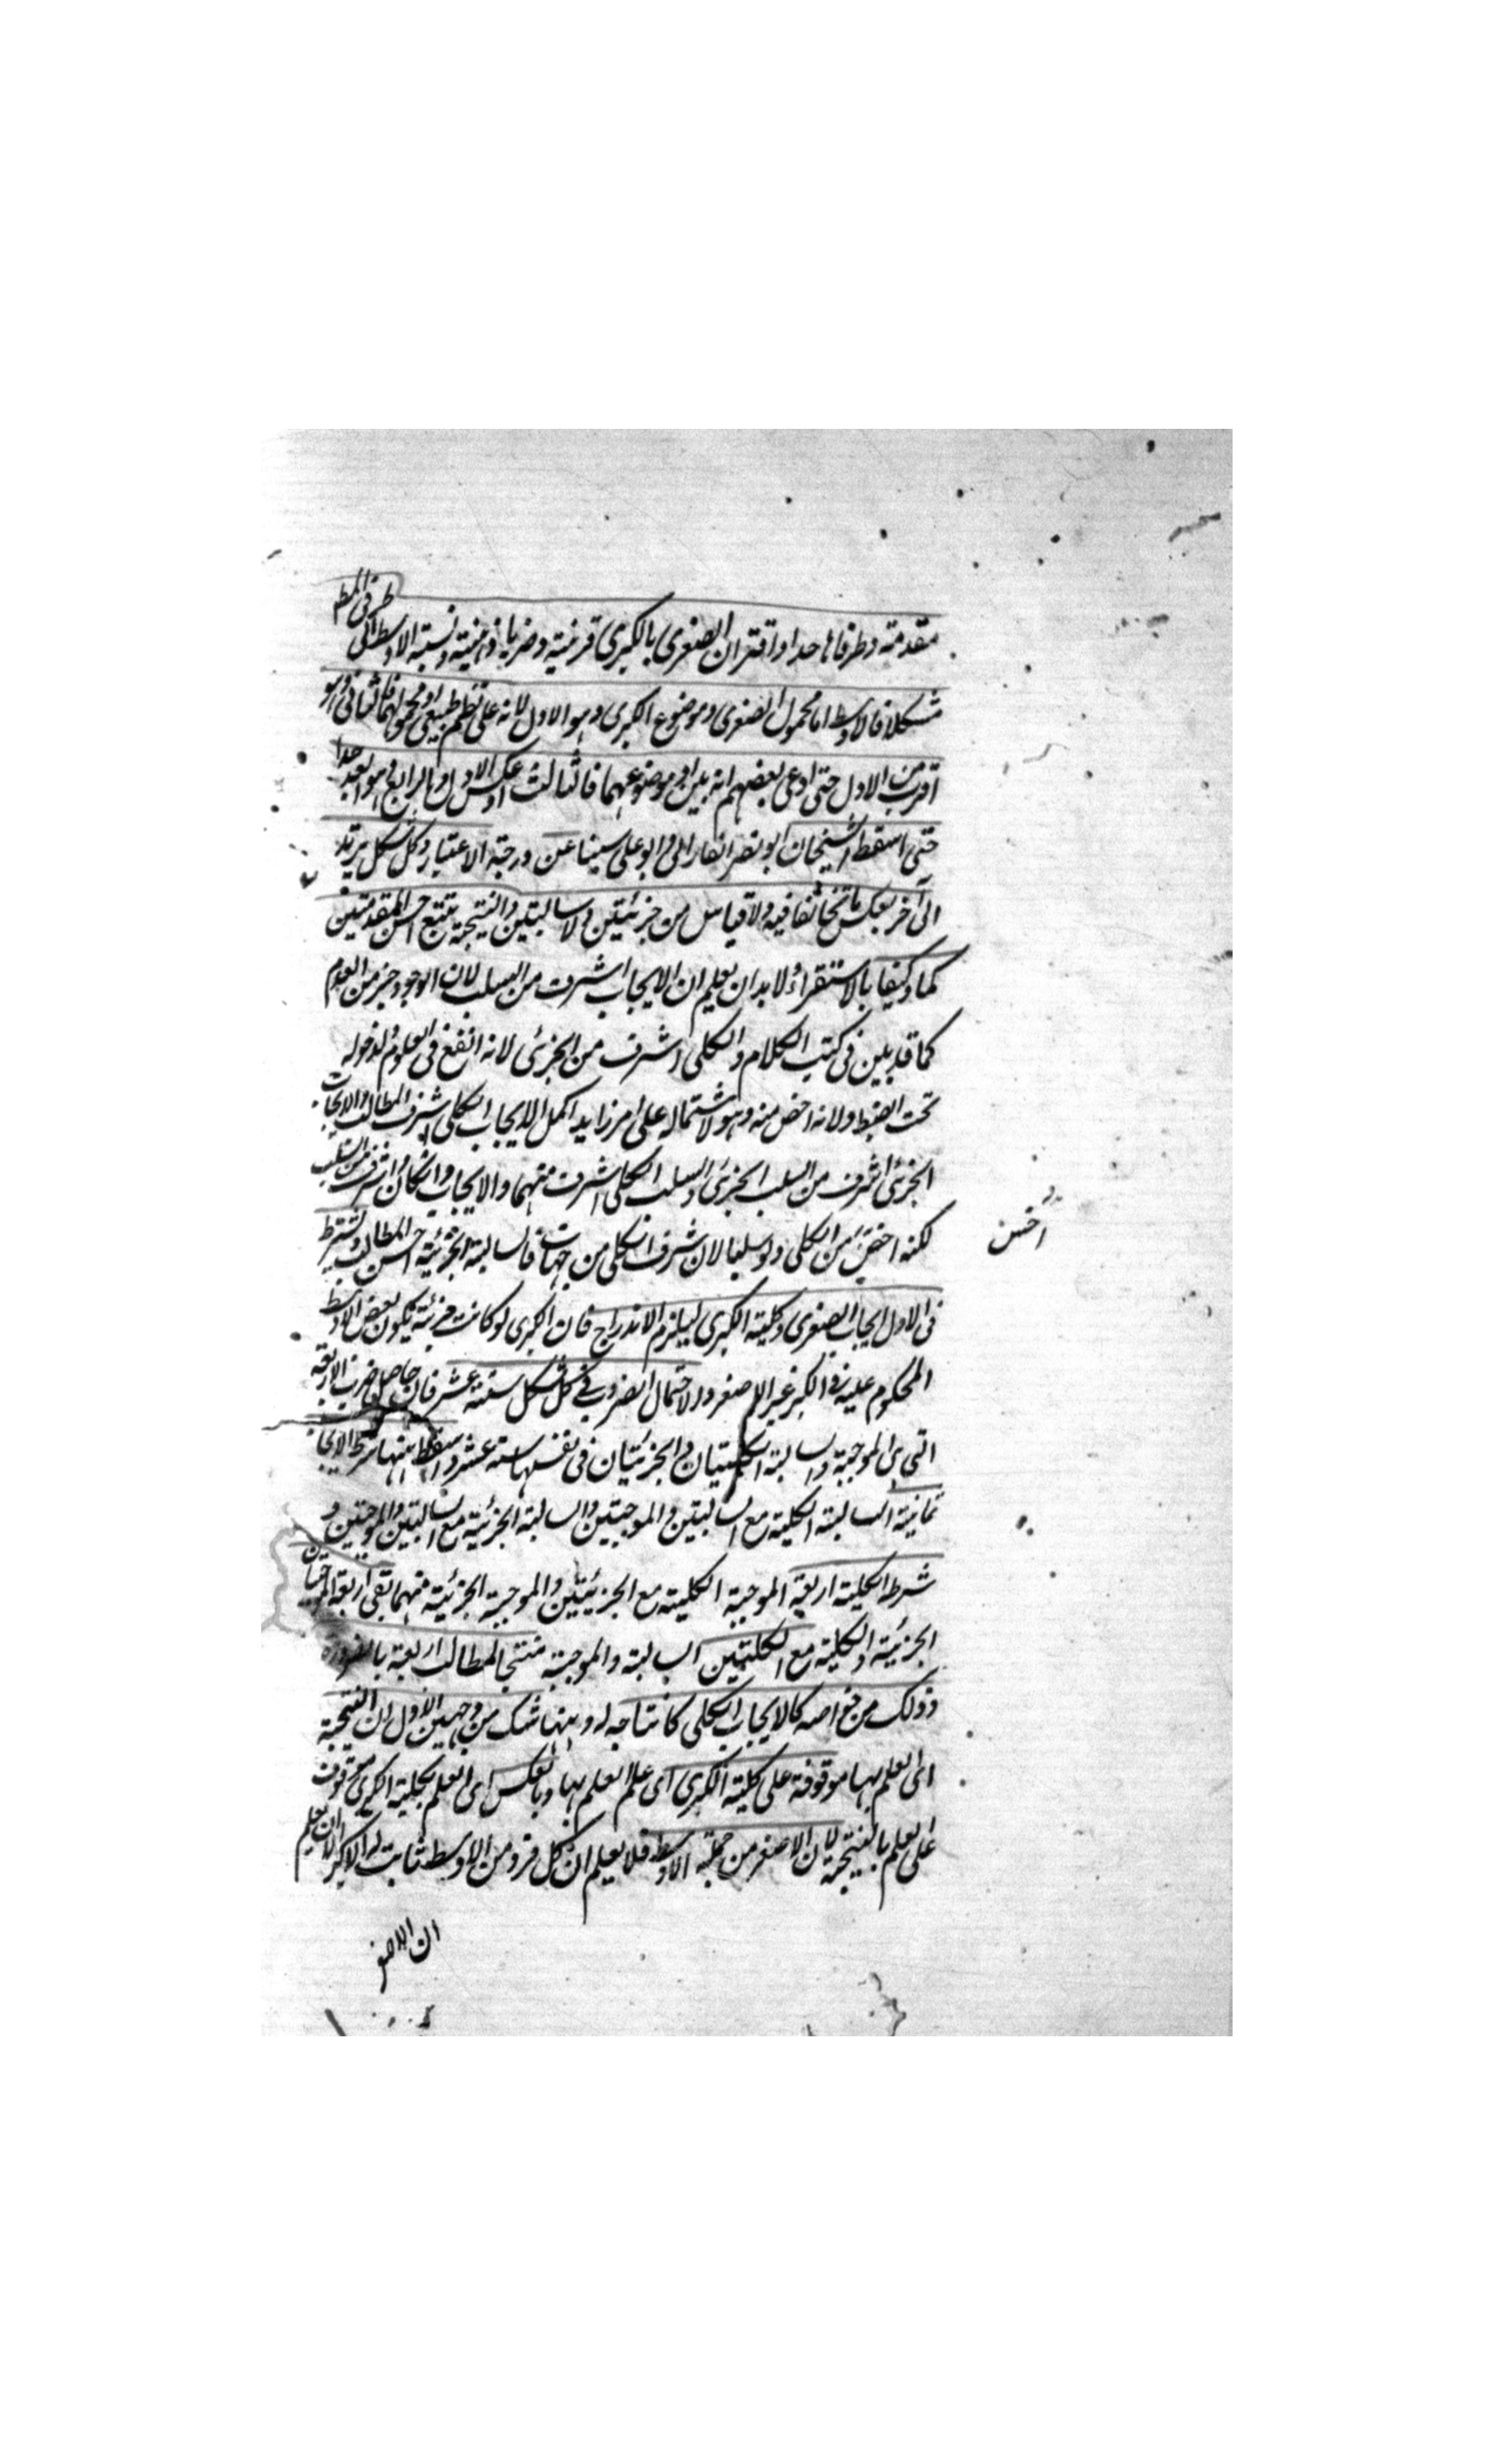 مقدمة وطرفاها حدا واقتران الصغرى بالكبرى قرينة وضربا والهيئة ونسبة الاوسط الى طرفى المط
شكلا فالاوسط اما محمول الصغرى وموضوع الكبرى وهو الاول لانه على نظم طبيعى او محمولهما فالثانى وهو
اقرب من الاول حتى ادعى بعضهم انه بين او موضوعهما فالثالث او عكس الاول فالرابع وهو ابعد جدا
حتى اسقط الشيخان ابو نصر الفارابى وابو على سينا عن درجة الاعتبار وكل شكل يرتد
الى آخر بعكس ما تخالفا فيه ولا قياس من جزئيتين ولا سالبتين والنتيجة تتبع اخس المقدمتين
كما وكيفا بالاستقراء لابد ان يعلم ان الايجاب اشرف من السلب لان الوجود خير من العدم
كما قد بين فى كتب الكلام والكلى اشرف من الجزئى لانه انفع فى العلوم لدخوله
تحت الضبط ولانه اخص منه وهو لاشتماله على امر زايد اكمل الايجاب الكلى اشرف المطالب والايجاب
الجزئى اشرف من السلب الجزئى والسلب الكلى اشرف منهما والايجاب وان كان اشرف من السلب
لكنه اخس من الكلى ولو سلبا لان شرف الكلى من جهات فالسالبة الجزئية اخس المطالب ويشترط
اخس
فى الاول ايجاب الصغرى وكلية الكبرى ليلزم الاندراج فان الكبرى لو كانت جزئية يكون بعض الاوسط
المحكوم عليه فى الكبر غير الاصغر والاحتمال الضروب فى كل شكل ستة عشر فان حاصل ضرب الاربعة
التى هى الموجبة والسالبة الكليتان والجزئيتان فى نفسها ستة عشر واسقط منها شرط الايجاب
ثمانية السالبة الكلية مع السالبتين والموجبتين والسالبة الجزئية مع السالبتين والموجبتين و
شرط الكلية اربعة الموجبة الكلية مع الجزئيتين والموجبة الجزئية منهما بقى اربعة الموجبتان
الجزئية والكلية مع الكليتين السالبة والموجبة منتجا لمطالب اربعة بالضرورة
وذلك من خواصه كالايجاب الكلى كانتاجه له وههنا شك من وجهين الاول ان النتيجة
اى العلم بها موقوفة على كلية الكبرى اى على العلم بها وبالعكس اى العلم بكلية الكبرى موقوف
على العلم بالنتيجة لان الاصغر من جملة الاوسط فلا يعلم ان كل فرد من الاوسط ثابت له الاكبر الا ان يعلم
ان الاصغر